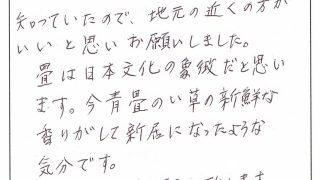 知っていたので、地元の近くの方が
いいと思いお願いしました。
畳は日本文化の象徴だと思い
ます。今青畳のい草の新鮮な
香りがして新居になったような
気分です。